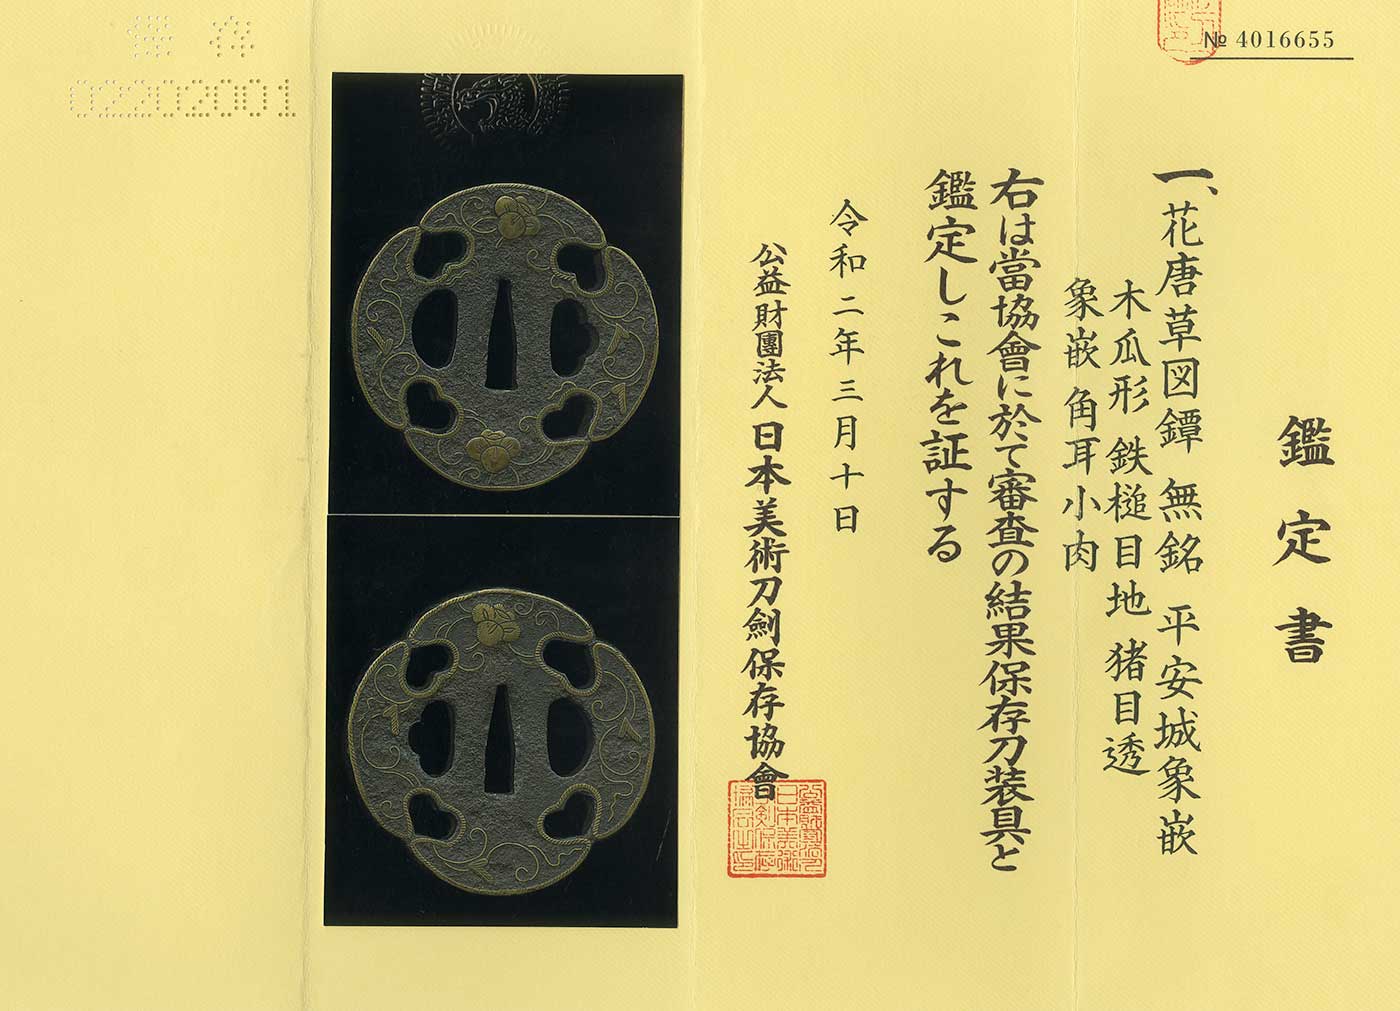 № 4016655
鑑定書
一、花唐草図鐔 無銘 平安城象嵌
木瓜形 鉄槌目地 猪目透
象嵌 角耳小肉
右は當協會に於て審査の結果保存刀装具と
鑑定しこれを証する
令和二年三月十日
公益財團法人 日本美術刀劍保存協會
保存
02202001